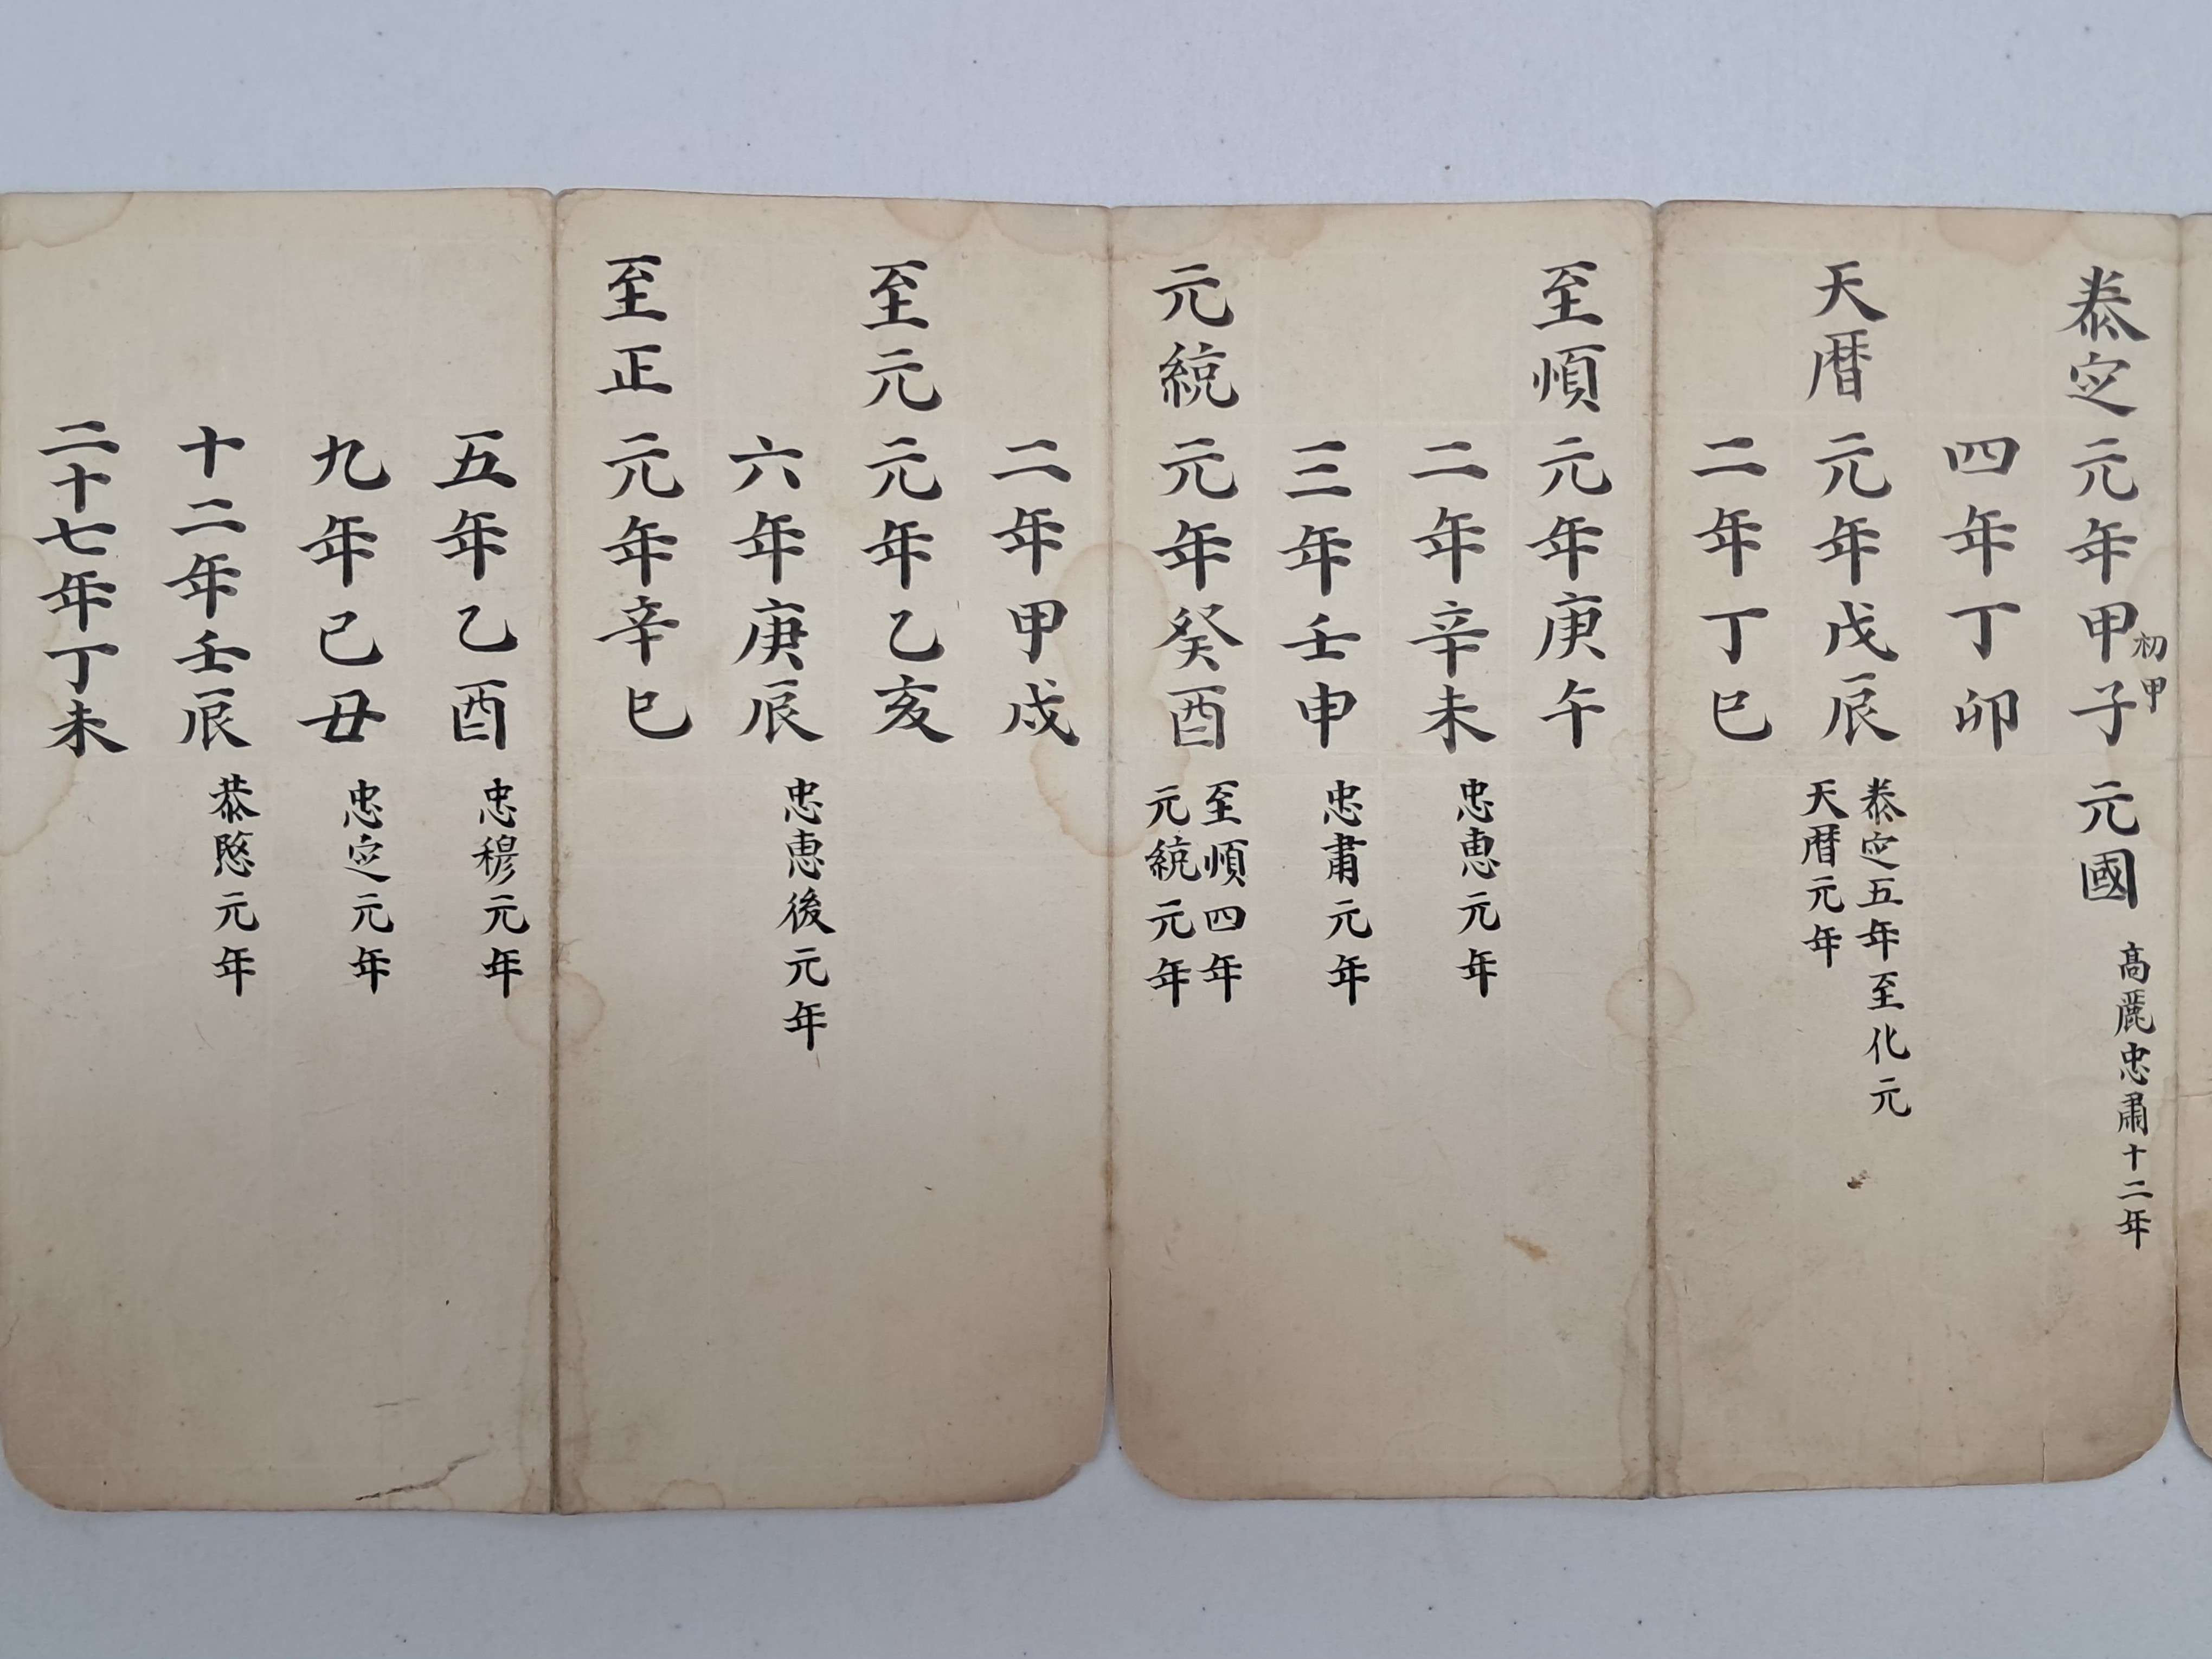 泰定元年甲子元國
初甲
高麗忠肅十二年
四年丁卯
天暦元年戊辰
泰定五年至化元
天暦元年
二年丁巳
至順元年庚午
二年辛未
忠恵元年
三年壬申
忠肅元年
元統元年癸酉
至順四年
元統元年
二年甲戌
至元元年乙亥
六年庚辰
忠惠後元年
至正元年辛巳
五年乙酉
忠穆元年
九年己丑
忠定元年
十二年壬辰
恭愍元年
二十七年丁未